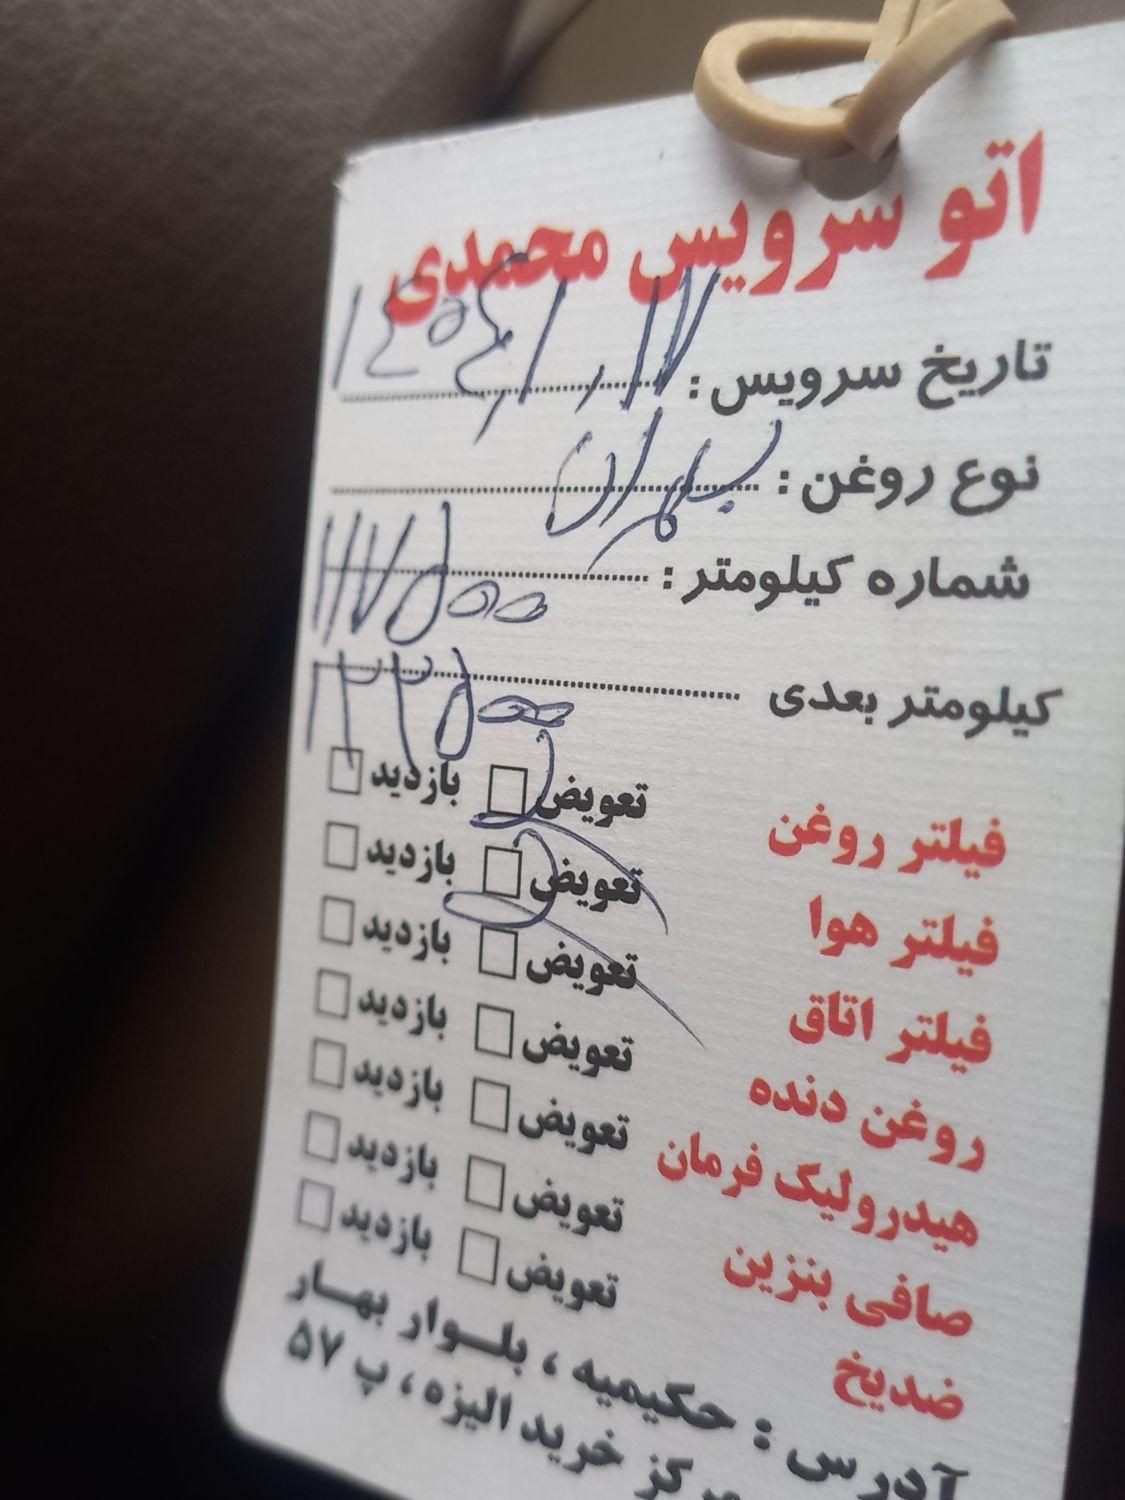 اتو سرویس محمدی
تاریخ سرویس : ۱۴۰۴,۱,۱۷
نوع روغن : بهران
شماره کیلومتر : ۱۱۷۵۰۰
کیلومتر بعدی ۱۲۲۵۰۰
فیلتر روغن تعویض بازدید
فیلتر هوا تعویض بازدید
فیلتر اتاق تعویض بازدید
روغن دنده تعویض بازدید
هیدرولیک فرمان تعویض بازدید
صافی بنزین تعویض بازدید
ضدیخ تعویض بازدید
آدرس : حکیمیه ، بلوار بهار
مرکز خرید الیزه ، پ ۵۷